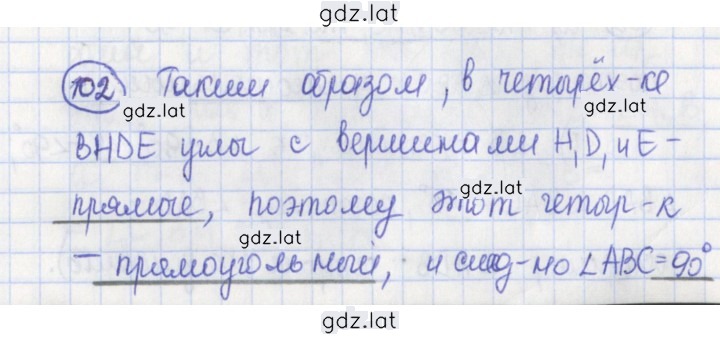 gdz.lat
102 Таким образом, в четырёх-ке
gdz.lat
gdz.lat
BHDE углы с вершинами H, D, и E -
gdz.lat
прямые, поэтому этот четыр-к
gdz.lat
— прямоугольный, и след-но ∠ABC = 90°
gdz.lat